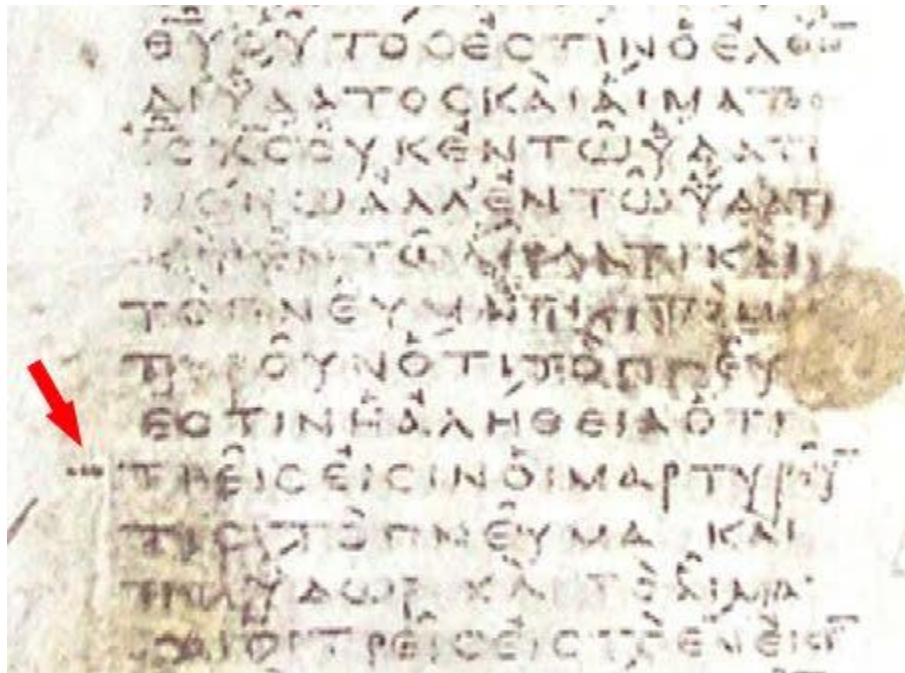 ΘΥ ΟΥΤΟC ΕCΤΙΝ Ο ΕΛΘΩ̅
ΔΙ ΥΔΑΤΟC ΚΑΙ ΑΙΜΑΤΟC
ΙC ΧC ΟΥΚ ΕΝ ΤΩ ΥΔΑΤΙ
ΜΟΝΩ ΑΛΛ ΕΝ ΤΩ ΥΔΑΤΙ
ΚΑΙ ΕΝ ΤΩ ΑΙΜΑΤΙ ΚΑΙ
ΤΟ ΠΝΕΥΜΑ
ΟΤΙ ΤΟ
ΕCΤΙΝ Η ΑΛΗΘΕΙΑ ΟΤΙ
ΤΡΕΙC ΕΙCΙΝ ΟΙ ΜΑΡΤΥΡΟΥ̅
ΤΕC ΤΟ ΠΝΕΥΜΑ ΚΑΙ
ΤΟ ΥΔΩΡ ΚΑΙ ΤΟ ΑΙΜΑ
ΚΑΙ ΟΙ ΤΡΕΙC ΕΙC ΤΟ ΕΝ ΕΙCΙ̅